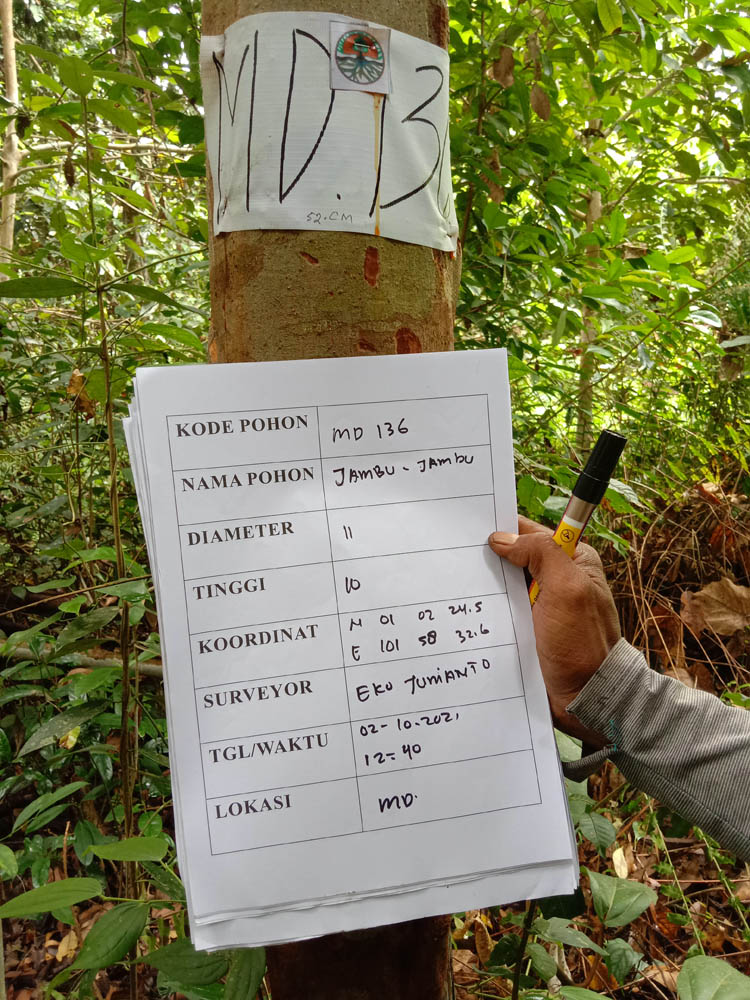 MD.13
52.CM
KODE POHON MD 136
NAMA POHON JAMBU - JAMBU
DIAMETER 11
TINGGI 10
KOORDINAT N 01 02 24.5
E 101 58 32.6
SURVEYOR EKO JUNIANTO
TGL/WAKTU 02-10-2021
12=40
LOKASI MD.